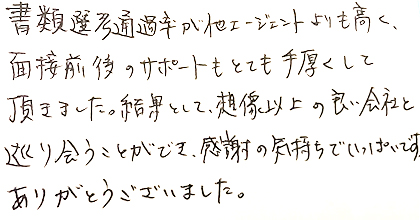 書類選考通過率が他エージェントよりも高く、
面接前後のサポートもとても手厚くして
頂きました。結果として、想像以上の良い会社と
巡り会うことができ、感謝の気持ちでいっぱいです
ありがとうございました。